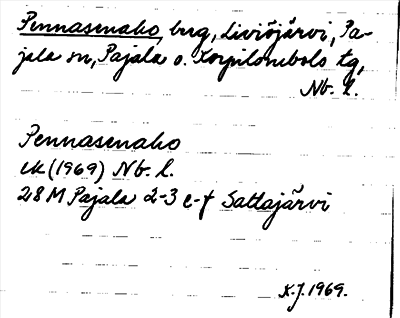 Pennasenaho, bug, Liviöjärvi, Pa-
jala sn, Pajala o. Korpilombolo tg,
Nb. l.
Pennasenaho
ek (1969) Nb. l.
28 M Pajala 2-3 e-f Sattajärvi
K.J. 1969.